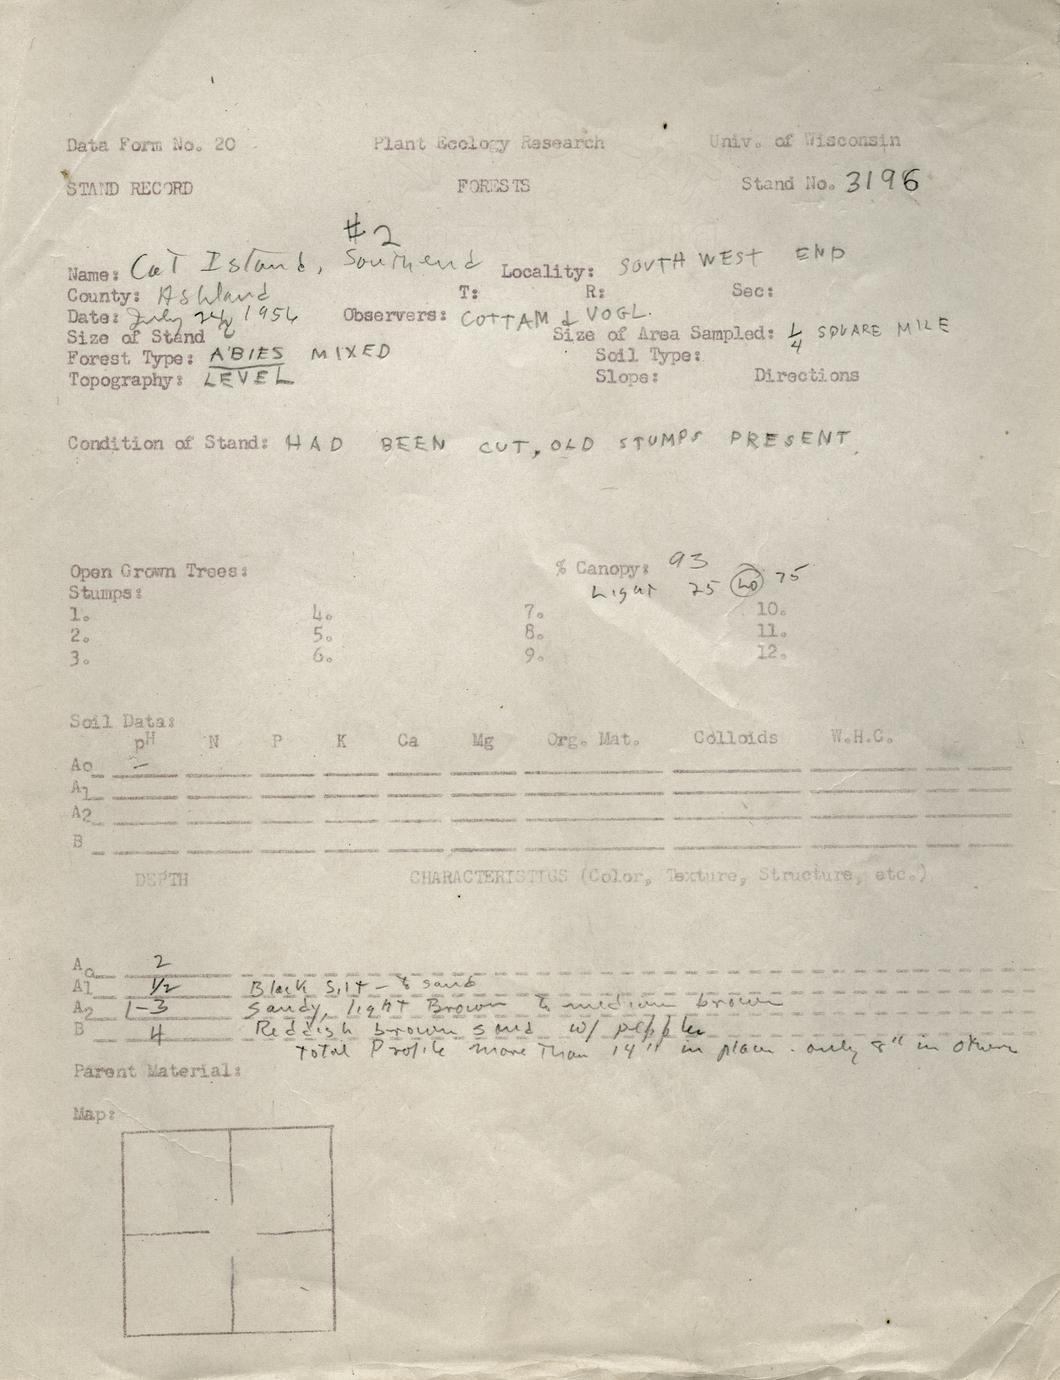 Data Form No. 20 Plant Ecology Research Univ. of Wisconsin
STAND RECORD FORESTS Stand No. 3196
#2
Name: Cat Island, South end Locality: SOUTH WEST END
County: Ashland T: R: Sec:
Date: July 24, 1956 Observers: COTTAM & VOGL.
Size of Stand Size of Area Sampled: 1/4 SQUARE MILE
Forest Type: ABIES MIXED Soil Type:
Topography: LEVEL Slope: Directions
Condition of Stand: HAD BEEN CUT, OLD STUMPS PRESENT.
Open Grown Trees: % Canopy: 93
Stumps: Light 25 75
1. 4. 7. 10.
2. 5. 8. 11.
3. 6. 9. 12.
Soil Data:
pH N P K Ca Mg Org. Mat. Colloids W.H.C.
Ao -
A1
A2
B
DEPTH CHARACTERISTICS (Color, Texture, Structure, etc.)
Ao 2
A1 1/2 Black Silt - to sand
A2 1-3 Sandy, light Brown to medium brown
B 4 Reddish brown sand w/
Total Profile more Than 14" in place. only 8" in others
Parent Material:
Map: